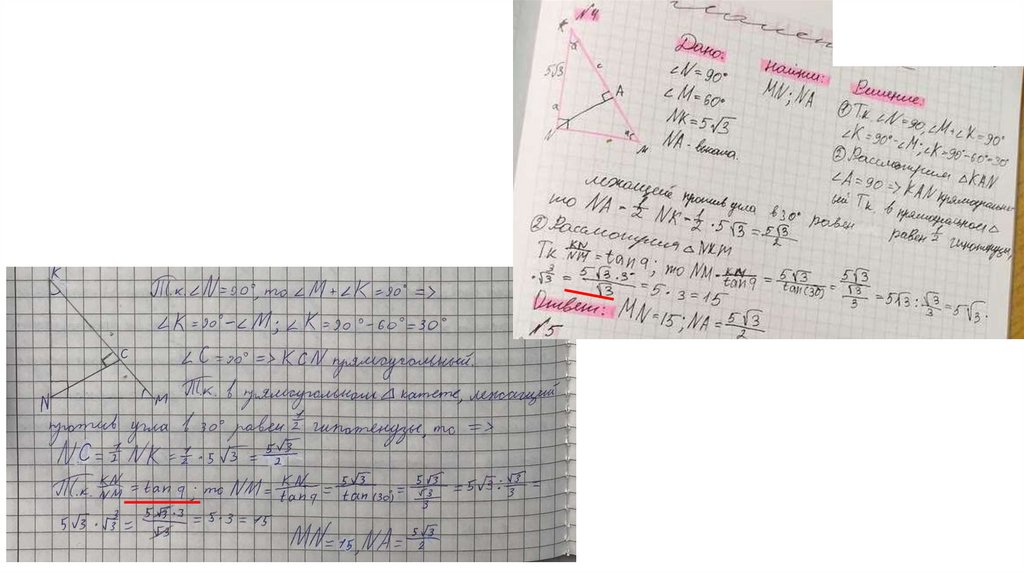 №4
K
5√3
A
N
M
Дано:
∠N=90°
∠M=60°
NK=5√3
NA-высота.
Найти:
MN; NA
Решение:
① Т.к. ∠N=90, ∠M+∠K=90°
∠K=90°-∠M; ∠K=90°-60°=30°
② Рассмотрим △KAN
∠A=90 => KAN прямоугольн-
ый Т.к. в прямоугольном △
лежащей против угла в 30° равен равен 1/2 гипотенузы,
то NA = 1/2 NK = 1/2 · 5√3 = 5√3/2
③ Рассмотрим △NKM
Тк KN/NM = tang; то NM = KN/tang = 5√3/tan(30) = 5√3/(√3/3) = 5√3 : √3/3 = 5√3 ·
· 3/√3 = 5√3·3/√3 = 5·3 = 15
Ответ: MN=15; NA = 5√3/2
№5
K
C
N
M
Т.к. ∠N=90°, то ∠M+∠K=90° =>
∠K=90°-∠M; ∠K=90°-60°=30°
∠C=90° => KCN прямоугольный.
Т.к. в прямоугольном △ катете, лежащий
против угла в 30° равен 1/2 гипотендзы, то =>
NC = 1/2 NK = 1/2 · 5√3 = 5√3/2
Т.к. KN/NM = tang; то NM = KN/tang = 5√3/tan(30) = 5√3/(√3/3) = 5√3 : √3/3 =
5√3 · 3/√3 = 5√3·3/√3 = 5·3 = 15
MN=15, NA = 5√3/2